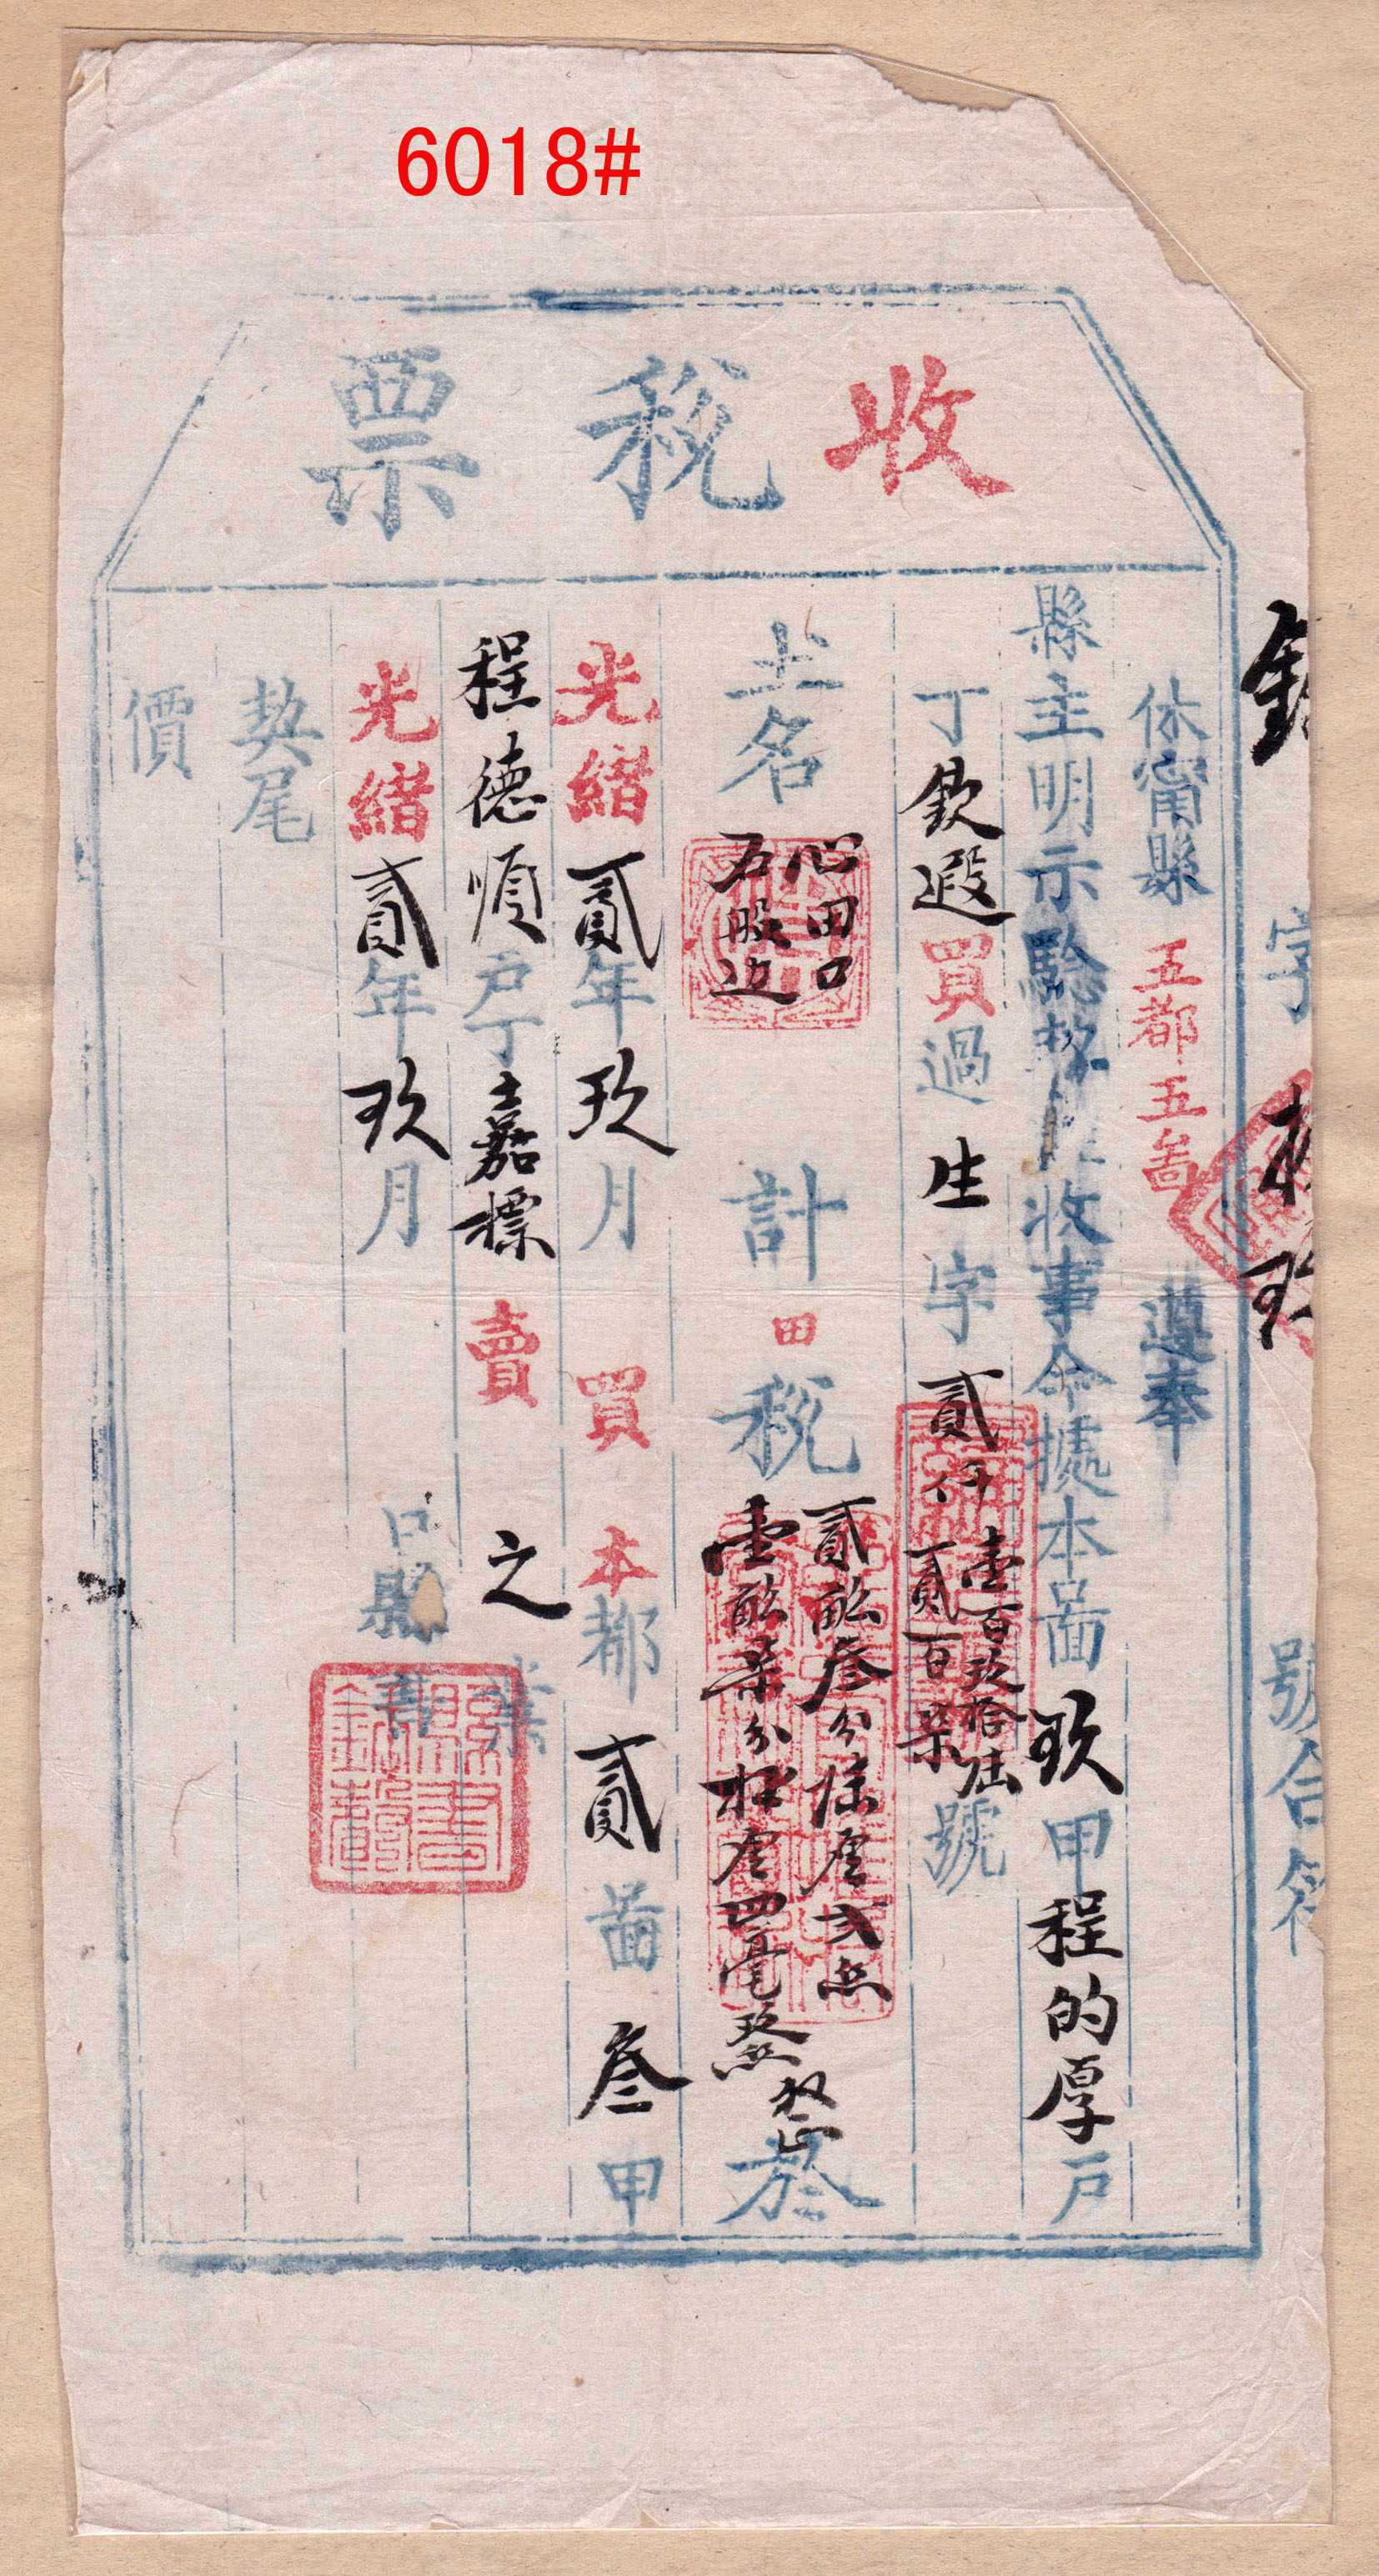 6018#
收稅票
字
號合符
休甯縣 五都五啚 遵奉
縣主明示驗契 收事今據本啚玖甲程的厚戶
丁欽遐買過生字貳仟貳百柒
壹百玖拾伍
號
土名
心田口
石服边
計田稅
貳畝叁分 厘
壹畝柒分 厘四毫
於
光緒貳年玖月買本都貳啚叁甲
程德順戶丁嘉標賣之業
光緒貳年玖月日縣
契尾
價